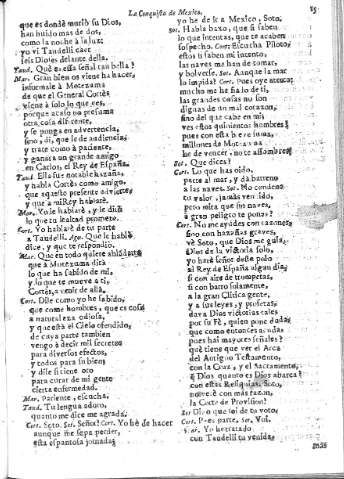 La Conquista de Mexico.
15
que es donde murió su Dios,
han huido mas de dos,
como la noche à la luz
yo vi Taudelli caer
seis Dioses delante della.
Taud. Què es esta señal tan bella?
Mar. Gran bien os viene ha hacer,
informale à Motezuma
de que el General Cortès
viene à solo lo que es,
porque acaso no presuma
otra cosa diferente,
y se ponga en advertencia,
sino, dì, que le dè audiencia
y trate como à pariente,
y ganarà un grande amigo
en Carlos, el Rey de España.
Taud. Ella fue notable hazaña,
y habla Cortès como amigo,
que aquesto presente advierte
y que à mi Rey hablarè.
Mar. Yo le hablarè, y le dirè
lo que tu lealtad promete.
Cort. Yo hablarè de tu parte
à Taudelli. Ago. Què le habla
dice, y que te respondiò.
Mar. Que en todo quiere
que à Motezuma dirà
lo que ha sabido de mì,
y lo que te mueve à tì,
Cortès, à venir de allà.
Cort. Dile como yo he sabido,
que come hombres, que es cosa
à natural eza odiosa,
y que està el Cielo ofendido,
de cuya parte tambien
vengo à decir mil secretos
para diversos efectos,
y todos para su bien,
y dile si tiene oro
para curar de mi gente
cierta enfermedad.
Mar. Pariente, escucha.
Taud. Tu lengua adoro,
quanto me dice me agrada.
Cort. Soto. Sot. Señor? Cort. Yo hè de hacer
aunque me sepa perder,
esta espantosa jornada;
yo he de ir à Mexico, Soto.
Sot. Habla baxo, que si saben
lo que intentas, que te acaben
sospecho. Cort. Escucha Piloto,
estos si saben mi intento,
las naves me han de tomar,
y bolverse. Sot. Aunque la mar
lo impida? Cort. Pues oye atento,
mucho me he fiado de tì,
las grandes cosas no son
dignas de un mal corazon,
sino del que cabe en mì;
ves estos quinientos hombres?
pues con esta he de
millones de Motezuma
he de vencer, no te assombres.
Sot. Que dices?
Cort. Lo que has oìdo,
parte al mar, y dà barreno
à las naves. Sot. No condeno
tu valor, jamàs vencido,
pero mira que sin naves,
à gran peligro te pones?
Cort. No me ayudes con razones,
sino con hazañas graves,
vè Soto, que Dios me guia,
Dios de la victoria solo,
yo harè señor deste polo
al Rey de España algun dia;
si con aire de trompetas,
si con barro solamente,
à la gran Cilicia gente,
y à sus leyes, y profetas,
dava Dios victorias tales
por su Fè, quien pone dudas
que como entonces acudas
pues hai mayores señales?
què tiene que ver el Arca
del Antiguo Testamento,
con la Cruz, y el Sacramento,
que Dios quanto es Dios abarca?
con estas Reliquias, Soto,
no irè con mas razon,
la Corte de Provision?
Sot. Digo que soi de tu voto,
Cort. Parte, parte. Sot. Voi.
Yo he tratado
con Taudelli tu venida,
mas